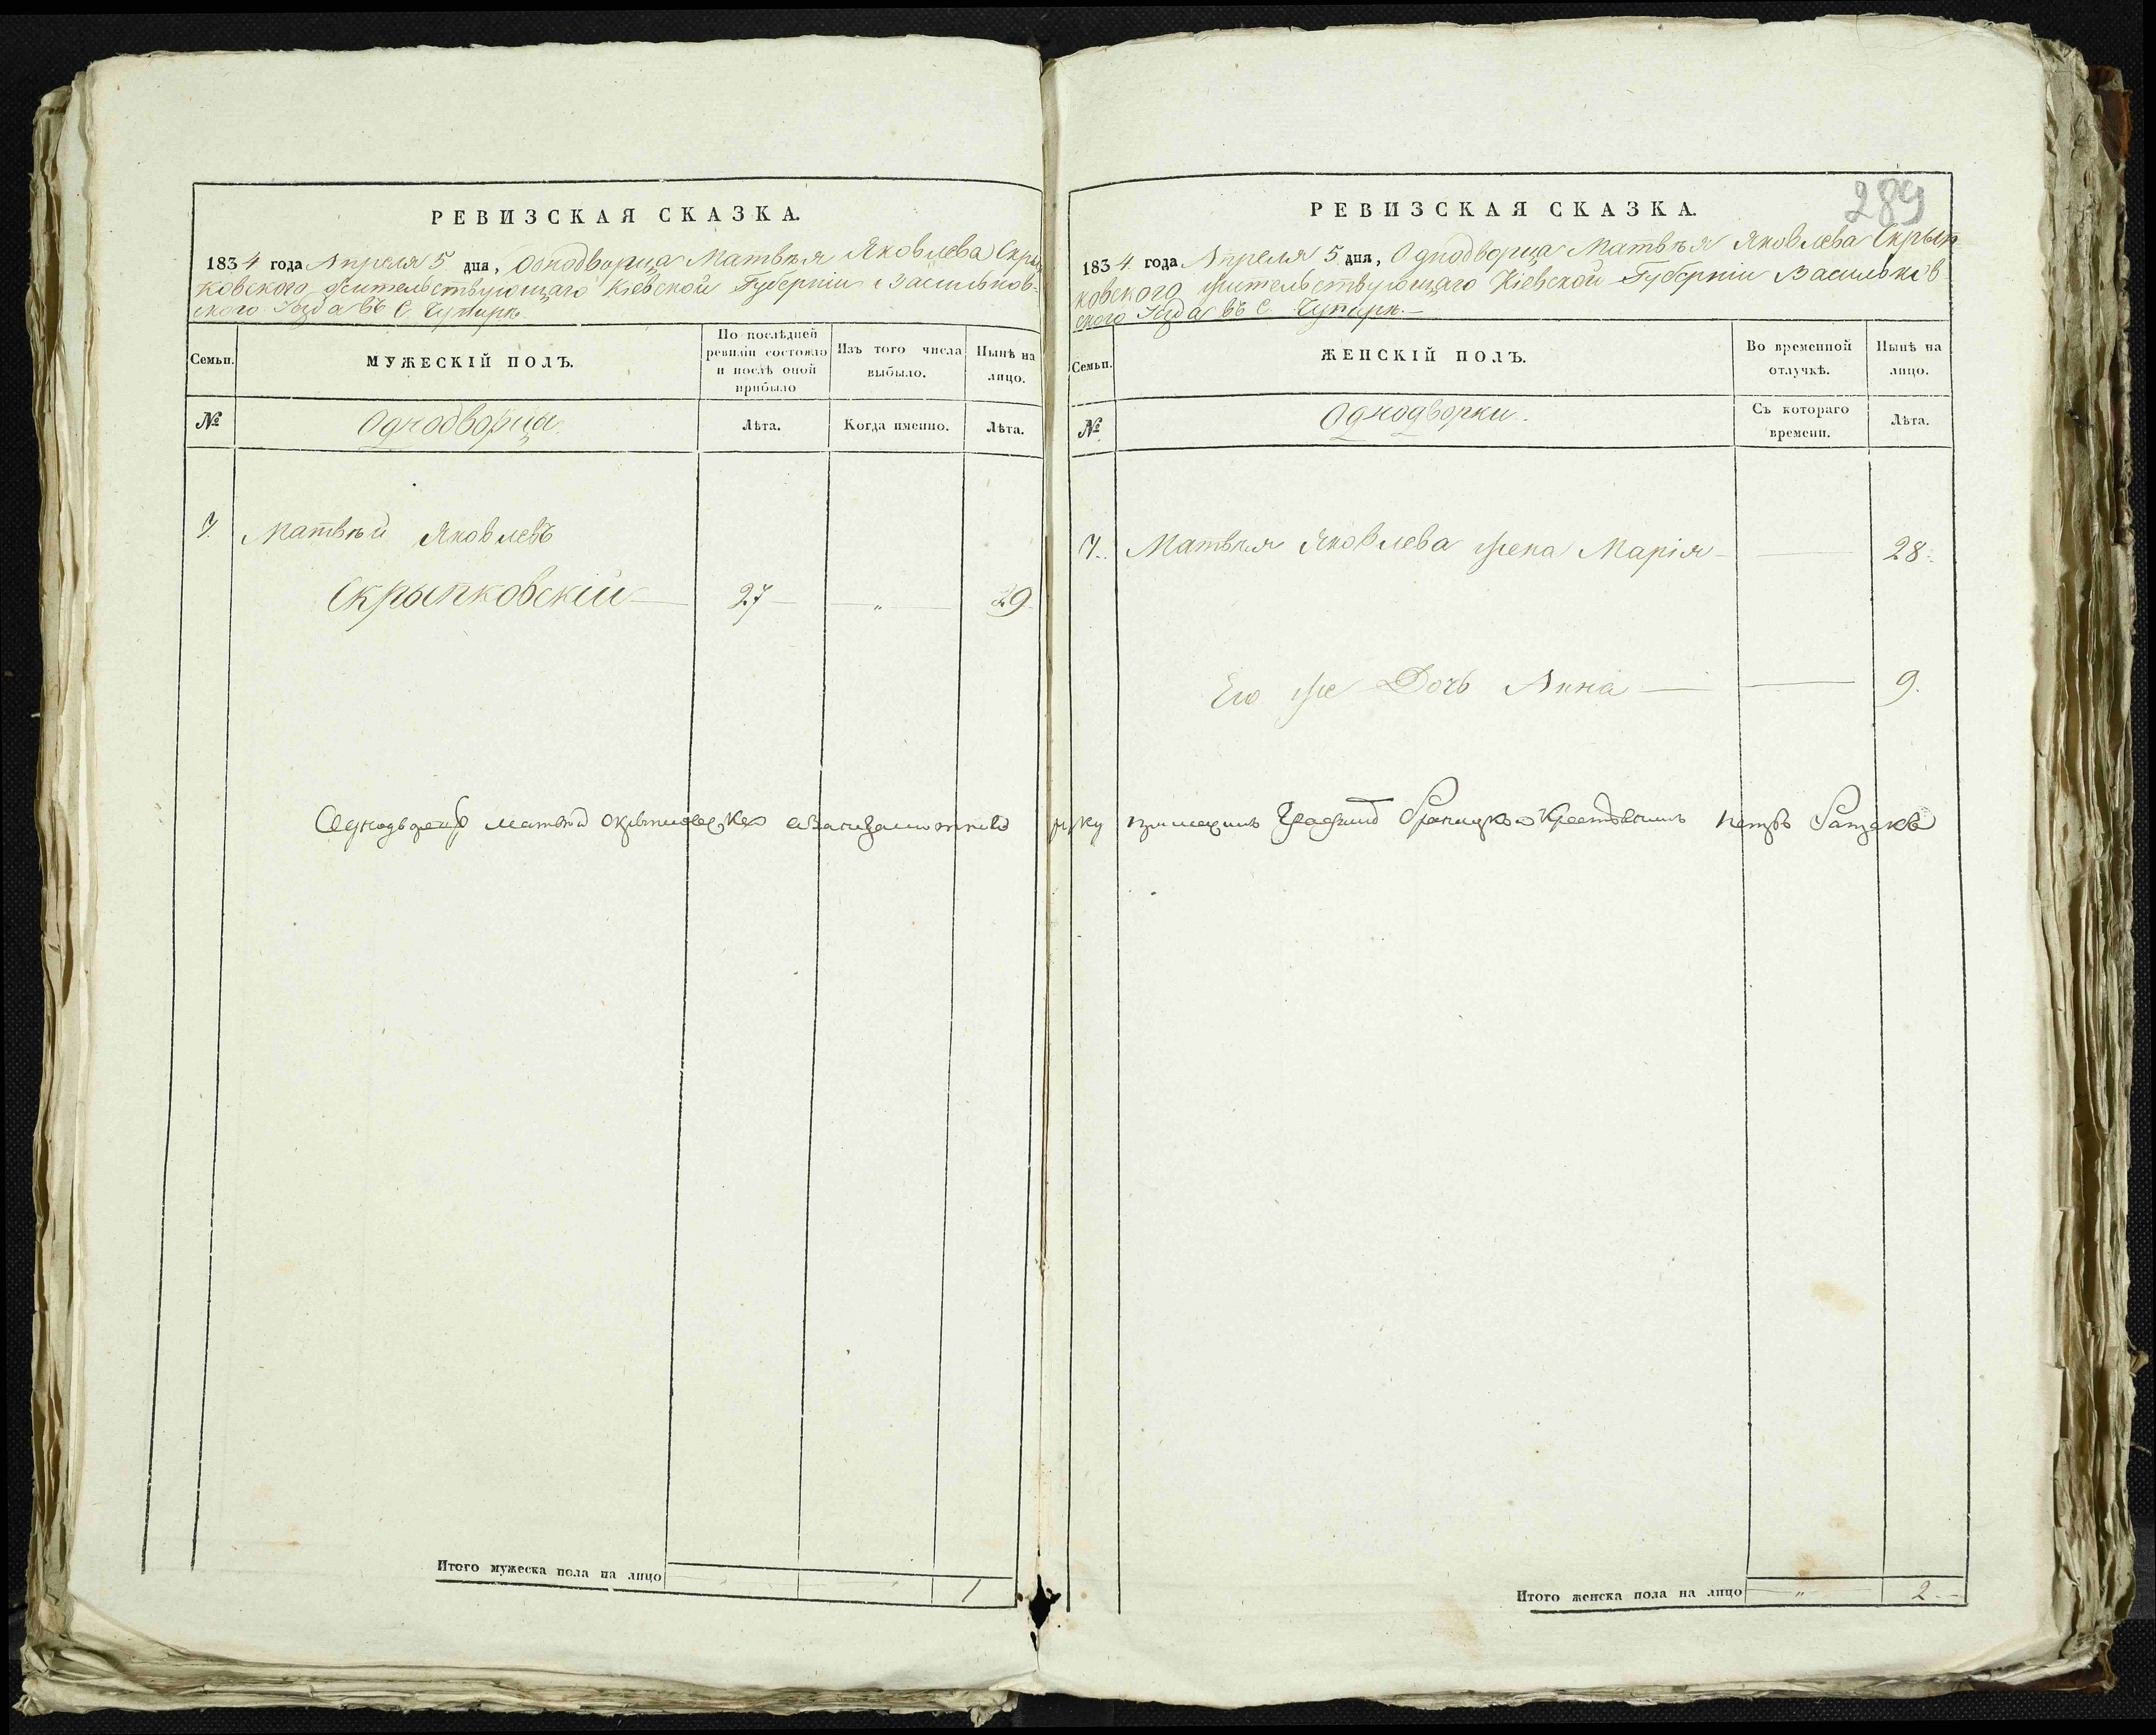 РЕВИЗСКАЯ СКАЗКА.
1834 года Апреля 5 дня, Однодворца Матвѣя Яковлева Скрып
ковского жительствующаго Кіевской Губерніи Васильков-
ского Уезда въ С.
Семьи.
МУЖЕСКІЙ ПОЛЪ.
По послѣдней
ревизіи состояло
и послѣ оной
прибыло
Изъ того числа
выбыло.
Нынѣ на
лицо.
№
Однодворцы
Лѣта.
Когда именно.
Лѣта.
Матвѣй Яковлевъ
Скрыпковскій — 27 — — „ — 29
Однодворец матвей
Итого мужеска пола на лицо
1
289
РЕВИЗСКАЯ СКАЗКА.
1834 года Апреля 5 дня, Однодворца Матвѣя Яковлева Скрып
ковского жительствующаго Кіевской Губерніи Васильков
ского Уезда въ С.
Семьи.
ЖЕНСКІЙ ПОЛЪ.
Во временной
отлучкѣ.
Нынѣ на
лицо.
№
Однодворки.
Съ котораго
времени.
Лѣта.
Матвѣя Яковлева жена Марія — — 28.
Его же Дочь Анна — — 9.
руку
Итого женска пола на лицо
„
2.—